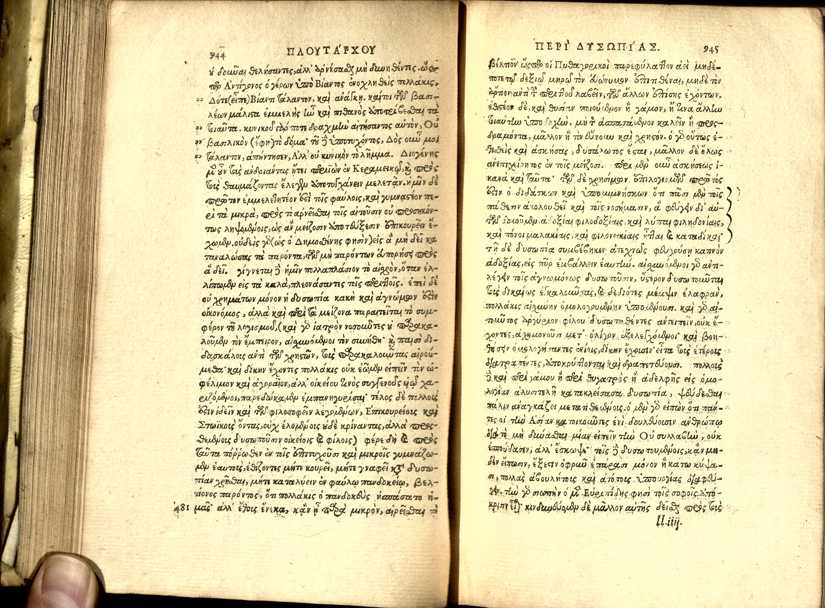 944 ΠΛΟΥΤΑΡΧΟΥ
τὸν Ἀντίγονον ὁ γέρων ὑπὸ Βίαντος ἐνοχληθεὶς πολλάκις,
Δότε (εἶπε) Βίαντι τάλαντον, καὶ ἀνάγκη. καίτοι τῶν βασι-
λέων μάλιστα ἐμμελὴς ἦν καὶ πιθανὸς ἀποτρίψασθαι τὰ
τοιαῦτα. κυνικοῦ γάρ ποτε δραχμὴν αἰτήσαντος αὐτόν, Οὐ
βασιλικὸν (ἔφη) τὸ δόμα. τοῦ δὲ ὑποτυχόντος, Δὸς οὖν μοι
τάλαντον, ἀπήντησεν, Ἀλλ' οὐ κυνικὸν τὸ λῆμμα. Διογένης
μὲν οὖν τοὺς ἀνδριάντας ᾔτει περιϊὼν ἐν Κεραμεικῷ, καὶ πρὸς
τοὺς θαυμάζοντας ἔλεγεν ἀποτυγχάνειν μελετᾶν. ἡμῖν δὲ
πρῶτον ἐμμελετητέον ἐστὶ τοῖς φαύλοις, καὶ γυμναστέον πε-
ρὶ τὰ μικρά, πρὸς τὸ ἀρνεῖσθαι τοῖς αἰτοῦσιν οὐ προσηκόν-
χωμεν. οὐδεὶς γὰρ (ὡς ὁ Δημοσθένης φησὶν) εἰς ἃ μὴ δεῖ κα-
ταναλώσας τὰ παρόντα, τῶν μὴ παρόντων εὐπορήσει πρὸς
ἃ δεῖ. γίγνεται δὲ ἡμῖν πολλαπλάσιον τὸ αἰσχρόν, ὅταν ἐλ-
λίπωμεν εἰς τὰ καλά, πλεονάσαντες τοῖς περιττοῖς. ἐπεὶ δὲ
οὐ χρημάτων μόνον ἡ δυσωπία κακὴ καὶ ἀγνώμων ἐστὶν
οἰκονόμος, ἀλλὰ καὶ περὶ τὰ μείζονα παραιτεῖται τὸ συμ-
φέρον τοῦ λογισμοῦ, (καὶ γὰρ ἰατρὸν νοσοῦντες οὐ παρακα-
λοῦμεν τὸν ἔμπειρον, αἰσχυνόμενοι τὸν συνήθη· καὶ παισὶ δι-
δασκάλους ἀντὶ τῶν χρηστῶν, τοὺς παρακαλοῦντας αἱρού-
μεθα· καὶ δίκην ἔχοντες πολλάκις οὐκ ἐῶμεν εἰπεῖν τὸν ὠ-
φέλιμον καὶ ἀγοραῖον, ἀλλ' οἰκείου τινὸς ἢ συγγενοῦς υἱῷ χα-
ριζόμενοι, παρεδώκαμεν ἐμπανηγυρίσαι· τέλος δὲ πολλοὺς
ἐστὶν ἰδεῖν καὶ τῶν φιλοσοφεῖν λεγομένων, Ἐπικουρείους καὶ
Στωϊκοὺς ὄντας, οὐχ ἑλομένους οὐδὲ κρίναντας, ἀλλὰ προσ-
θεμένους δυσωποῦσιν οἰκείοις καὶ φίλοις) φέρε δὴ καὶ πρὸς
ταῦτα πόρρωθεν ἐν τοῖς ἐπιτυχοῦσι καὶ μικροῖς γυμνάζω-
μεν ἑαυτούς, ἐθίζοντες μήτε κουρεῖ, μήτε γναφεῖ κατὰ δυσω-
πίαν χρῆσθαι, μήτε καταλύειν ἐν φαύλῳ πανδοκείῳ, βελ-
τίονος παρόντος, ὅτι πολλάκις ὁ πανδοκεὺς ἠσπάσατο ἡ-
481 μᾶς· ἀλλ' ἔθους ἕνεκα, κἂν ᾖ παρὰ μικρόν, αἱρεῖσθαι τὸ
ΠΕΡΙ ΔΥΣΩΠΙΑΣ. 945
βέλτιον· ὥσπερ οἱ Πυθαγορικοὶ παρεφύλαττον ἀεὶ μηδέ-
ποτε τῷ δεξιῷ μηρῷ τὸν εὐώνυμον ἐπιτιθέναι, μηδὲ τὸν
ἄρτιον ἀντὶ τοῦ περιττοῦ λαβεῖν, τῶν ἄλλων ἐπίσης ἐχόντων.
δραμόντα, μᾶλλον ἢ τὸν εὔνουν καὶ χρηστόν. ὁ γὰρ οὕτως ἐ-
θισθεὶς καὶ ἀσκήσας, δυσάλωτος ἔσται, μᾶλλον δὲ ὅλως
ἀνεπιχείρητος ἐν τοῖς μείζοσι. περὶ μὲν οὖν ἀσκήσεως ἱ-
κανὰ καὶ ταῦτα· τῶν δὲ χρησίμων ἐπιλογισμῶν πρῶτός
ἐστιν ὁ διδάσκων καὶ ὑπομιμνήσκων ὅτι πᾶσι μὲν τοῖς
πάθεσιν ἀκολουθεῖ καὶ τοῖς νοσήμασιν, ἃ φεύγειν δι' αὐ-
τῶν δοκοῦμεν· ἀδοξίαι φιλοδοξίαις, καὶ λῦπαι φιληδονίαις,
καὶ πόνοι μαλακίαις, καὶ φιλονεικίαις ἧτται καὶ καταδίκαι·
τῇ δὲ δυσωπίᾳ συμβέβηκεν ἀτεχνῶς φευγούσῃ καπνὸν
ἀδοξίας, εἰς πῦρ ἐμβάλλειν ἑαυτήν. αἰσχυνόμενοι γὰρ ἀντι-
λέγειν τοῖς ἀγνωμόνως δυσωποῦσιν, ὕστερον δυσωποῦνται
τοὺς δικαίως ἐγκαλοῦντας, καὶ δεδιότες μέμψιν ἐλαφράν,
πολλάκις αἰσχύνην ὁμολογουμένην ὑπομένουσι. καὶ γὰρ αἰ-
τοῦντος ἀργύριον φίλου δυσωπηθέντες ἀντειπεῖν, οὐκ ἔ-
χοντες, ἀσχημονοῦσι μετ' ὀλίγον, ἐξελεγχόμενοι· καὶ βοη-
διατραπέντες, ἀποκρύπτονται καὶ δραπετεύουσι. πολλοὺς
δὲ καὶ περὶ γάμου ἢ θυγατρὸς ἢ ἀδελφῆς εἰς ὁμο-
λογίαν ἀλυσιτελῆ κατακλείσασα δυσωπία, ψεύδεσθαι
πάλιν ἀναγκάζει μετατιθεμένους. ὁ μὲν γὰρ εἰπὼν ὅτι πάν-
τες οἱ τὴν Ἀσίαν κατοικοῦντες ἑνὶ δουλεύουσιν ἀνθρώπῳ
διὰ τὸ μὴ δύνασθαι μίαν εἰπεῖν τὴν Οὐ συλλαβήν, οὐκ
ἐσπούδασεν, ἀλλ' ἔσκωψε· τοῖς δὲ δυσωπουμένοις, κἂν μη-
δὲν εἴπωσιν, ἔξεστιν ὀφρὺν ἐπάρασι μόνον ἢ κάτω κύψα-
σι, πολλὰς ἀβουλήτους καὶ ἀτόπους ὑπουργίας διαφεύ-
γειν. τὴν γὰρ σιωπὴν ὁ μὲν Εὐριπίδης φησὶ τοῖς σοφοῖς ἀπό-
κρισιν εἶναι· κινδυνεύομεν δὲ μᾶλλον αὐτῆς δεῖσθαι πρὸς τοὺς
ll.iiij.